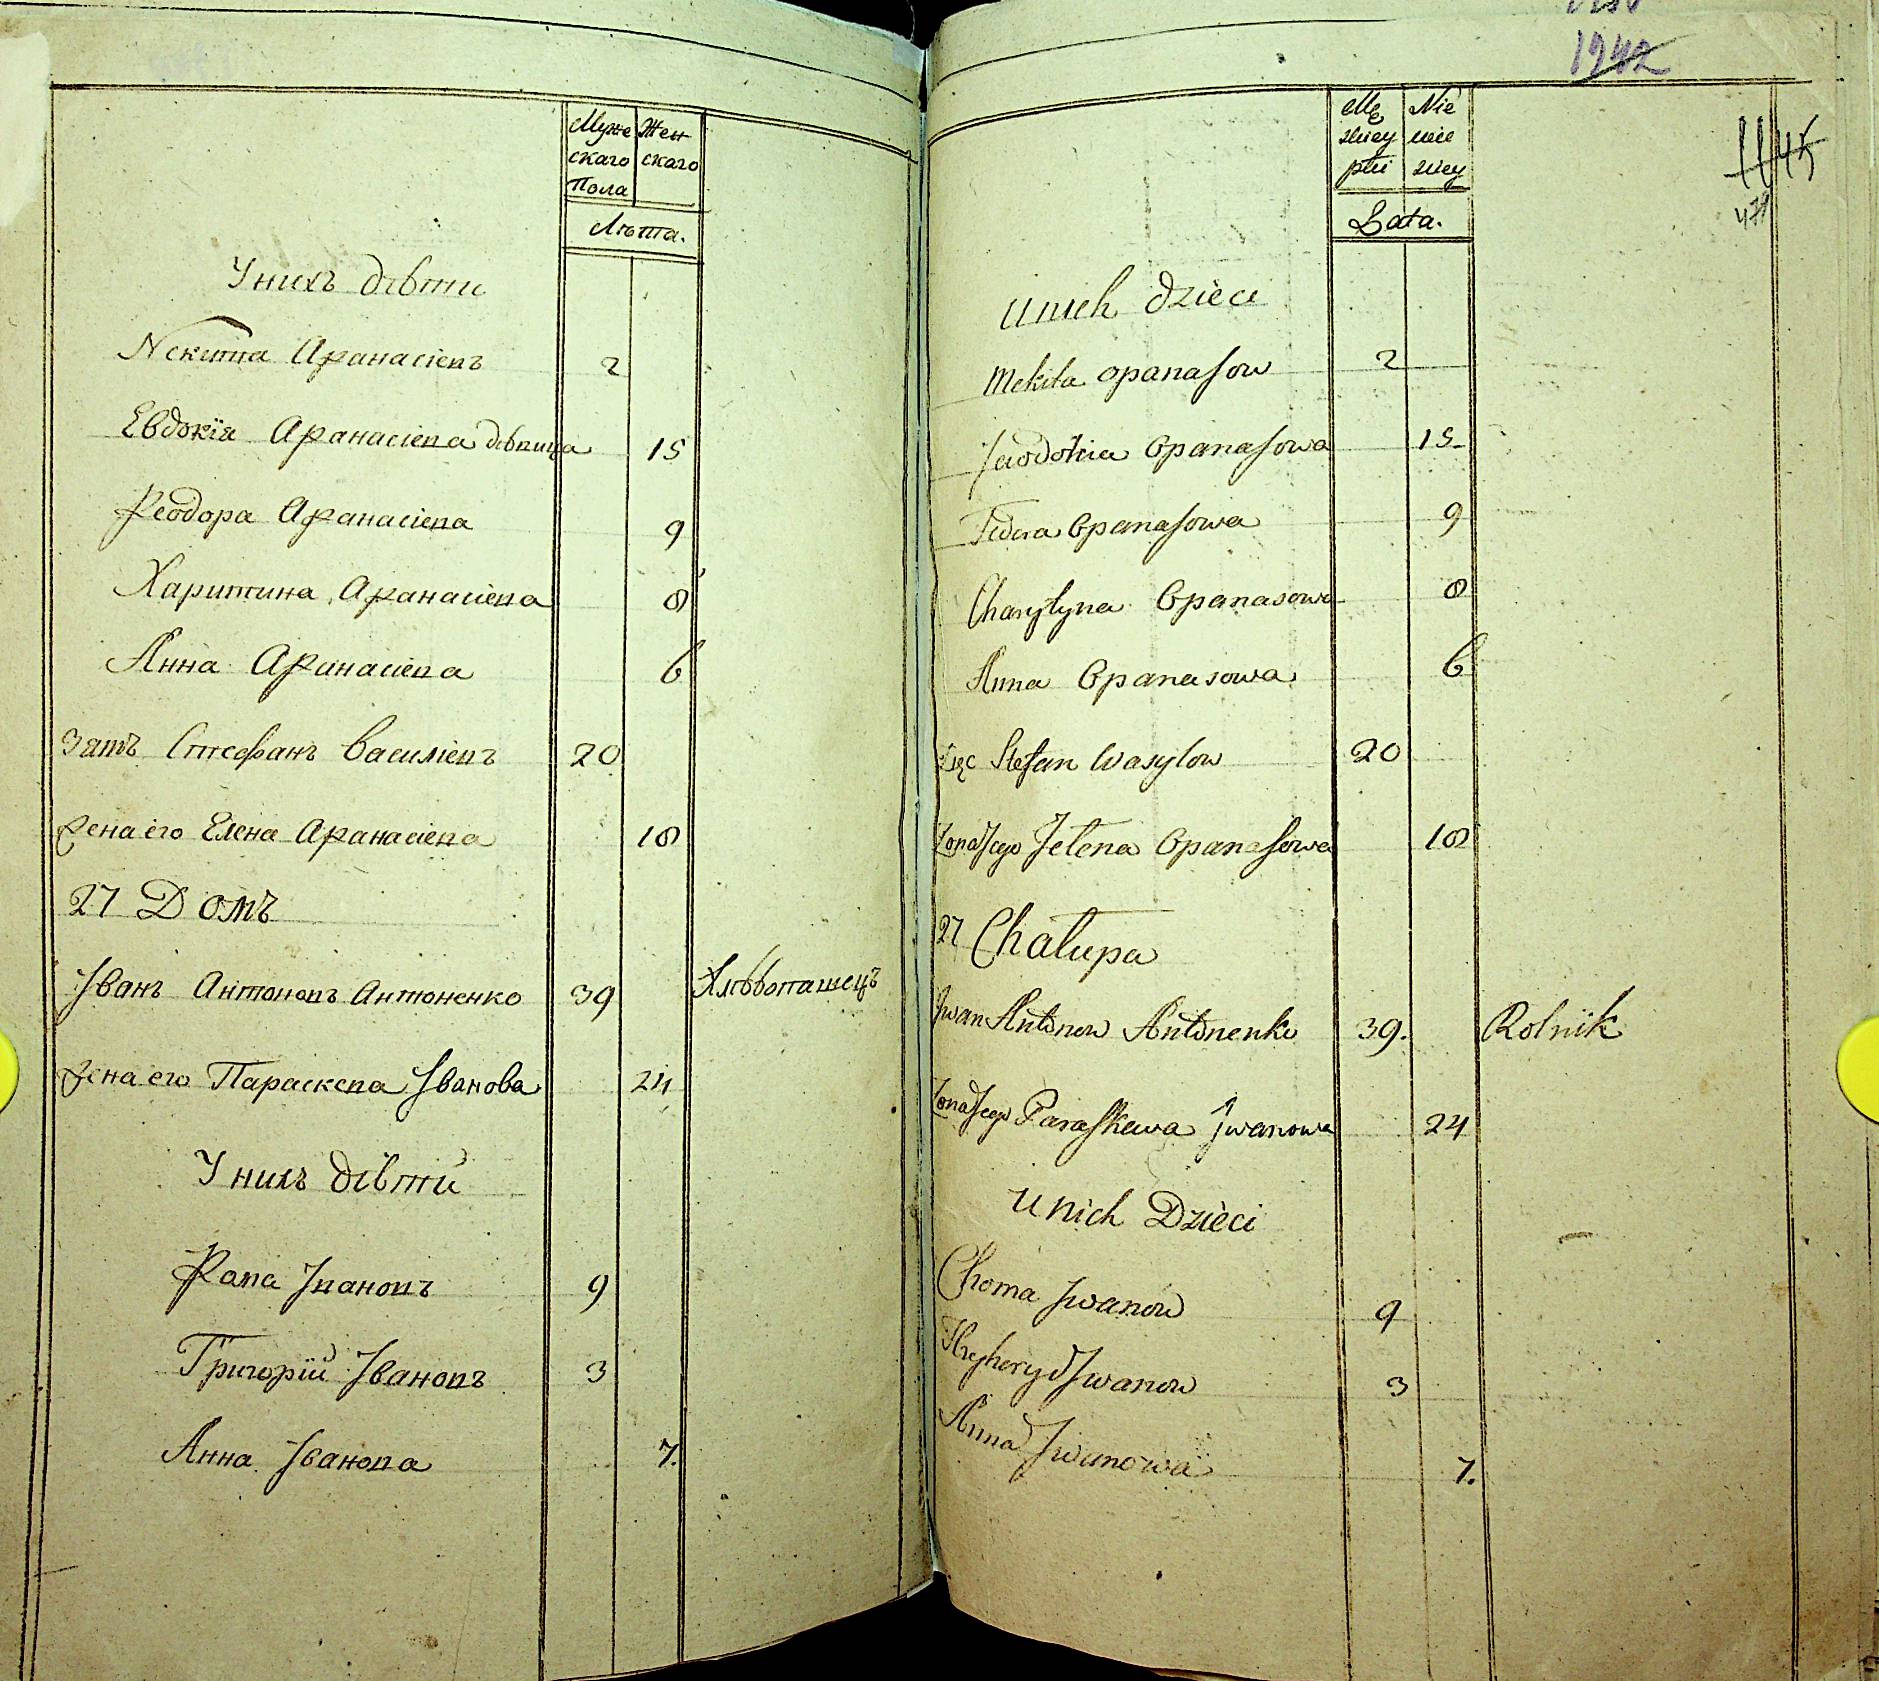 Муже Жен
скаго скаго
Пола
Лѣта.
У нихъ дѣти
Некита Афанасіевъ 2
Евдокія Афанасіева дѣвица 15
Феодора Афанасіева 9
Харитина Афанасіева 8
Анна Афанасіева 6
Зять Стефанъ Василіевъ 20
Жена его Елена Афанасіева 18
27 Домъ
Іванъ Антоновъ Антоненко 39 Хлѣбопашецъ
Жена его Параскева Іванова 24
У нихъ дѣти
Фома Івановъ 9
Григорій Івановъ 3
Анна Іванова 7.
1942
Mę Nie
zczey wie
płci
Lata.
1145
471
U nich dzieci
Mekita Opanasow 2
Jewdokia Opanasowa 15
Fedora Opanasowa 9
Charytyna Opanasowa 8
Anna Opanasowa 6
Zięc Stefan Wasylow 20
Zona Jego Jelena Opanasowa 18
27 Chalupa
Jwan Antonow Antonenko 39. Rolnik
Zona Jego Paraskewa Jwanowa 24
U nich Dzieci
Choma Jwanow 9
Hryhory Jwanow 3
Anna Jwanowa 7.